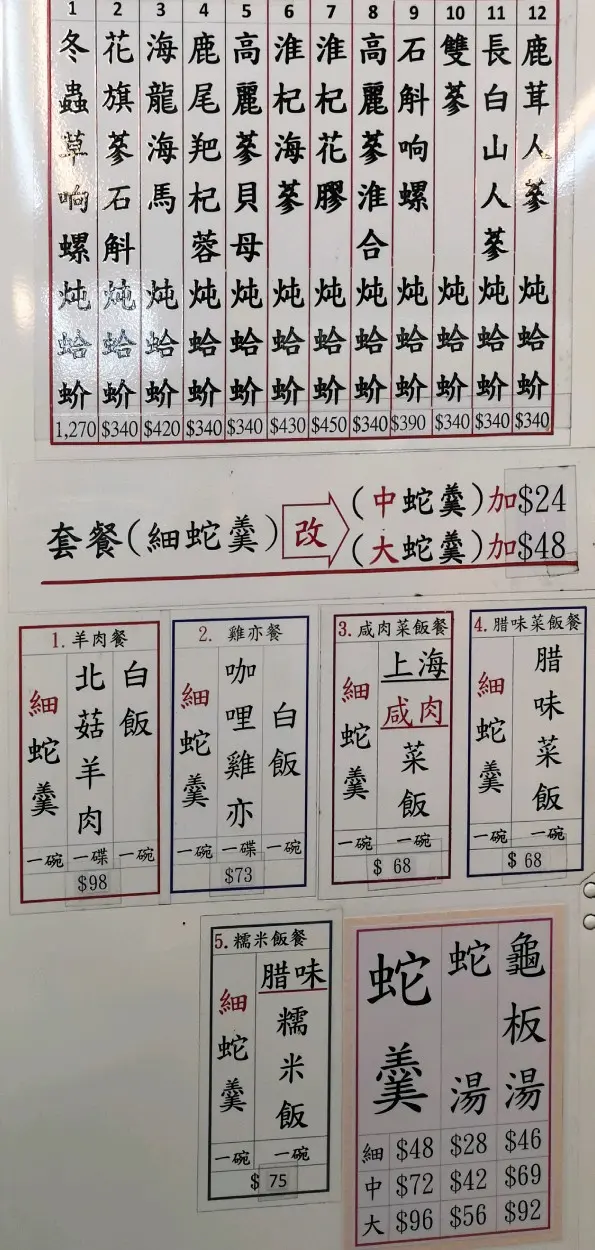 1 2 3 4 5 6 7 8 9 10 11 12
冬蟲草响螺炖蛤蚧
1,270
花旗蔘石斛炖蛤蚧
$340
海龍海馬炖蛤蚧
$420
鹿尾羓杞蓉炖蛤蚧
$340
高麗蔘貝母炖蛤蚧
$340
淮杞海蔘炖蛤蚧
$430
淮杞花膠炖蛤蚧
$450
高麗蔘淮合炖蛤蚧
$340
石斛响螺炖蛤蚧
$390
雙蔘炖蛤蚧
$340
長白山人蔘炖蛤蚧
$340
鹿茸人蔘炖蛤蚧
$340
套餐(細蛇羹)改
(中蛇羹)加$24
(大蛇羹)加$48
1. 羊肉餐
細蛇羹 一碗
北菇羊肉 一碟
白飯 一碗
$98
2. 雞亦餐
細蛇羹 一碗
咖哩雞亦 一碟
白飯 一碗
$73
3. 咸肉菜飯餐
細蛇羹 一碗
上海咸肉菜飯 一碗
$ 68
4. 腊味菜飯餐
細蛇羹 一碗
腊味菜飯 一碗
$ 68
5. 糯米飯餐
細蛇羹 一碗
腊味糯米飯 一碗
$ 75
蛇羹 蛇湯 龜板湯
細 $48 $28 $46
中 $72 $42 $69
大 $96 $56 $92